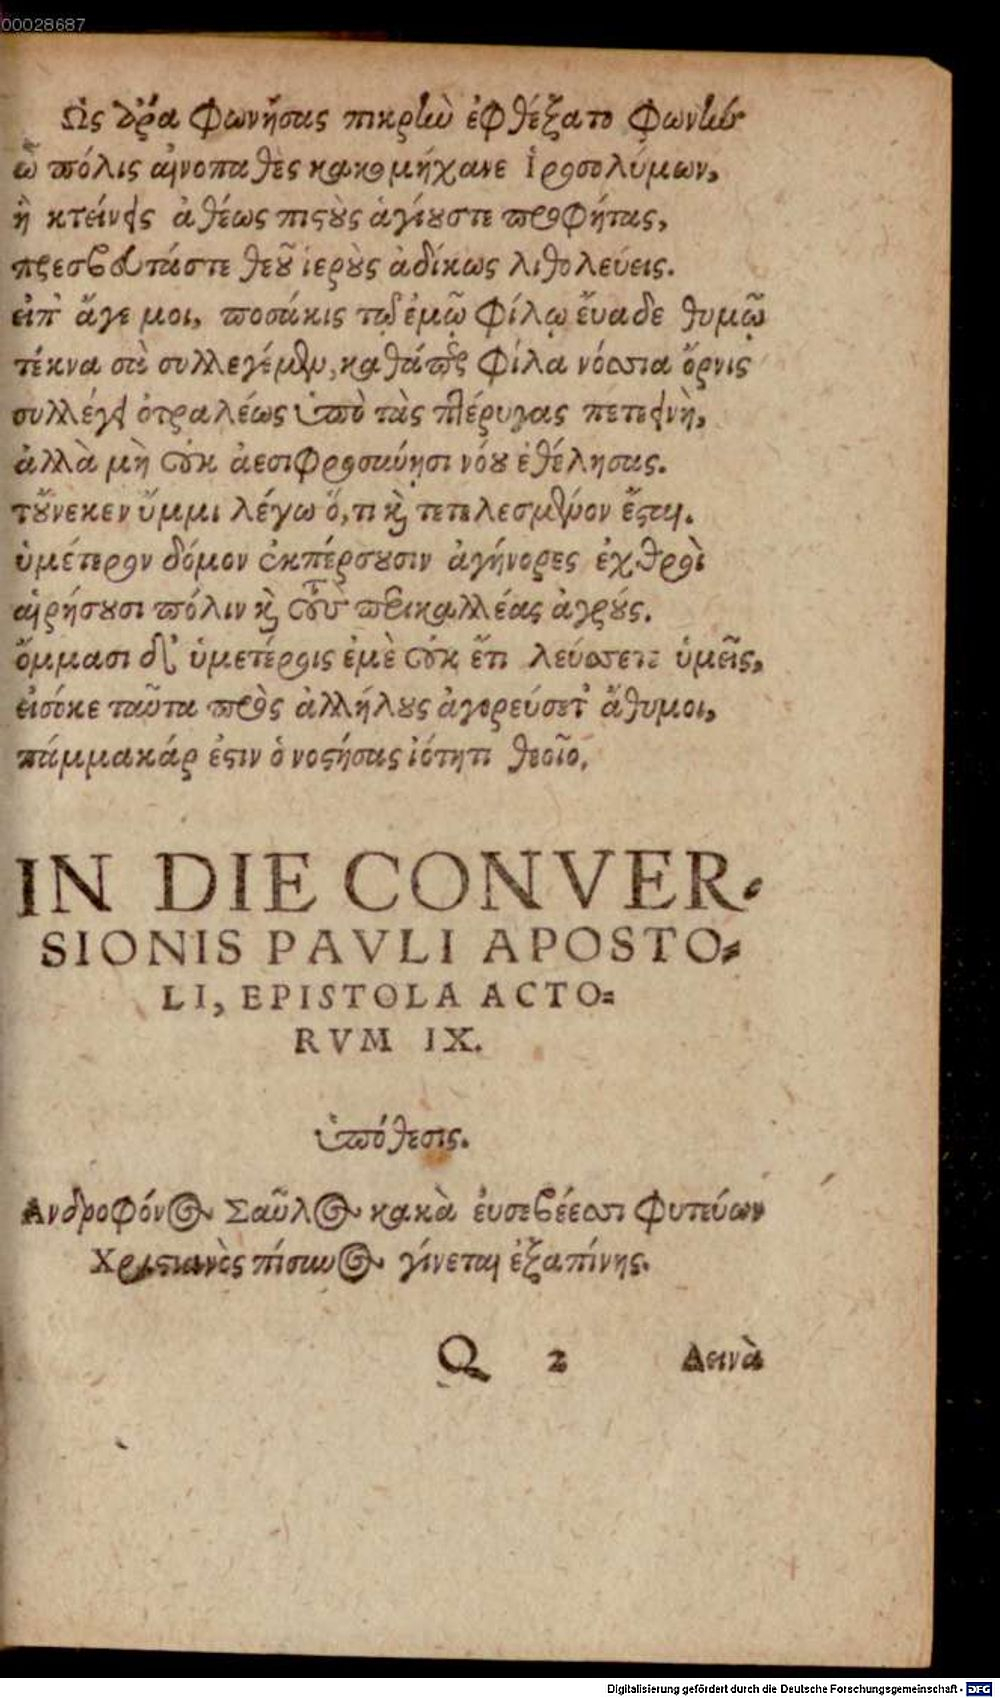 00028687
Ὣς ἄρα φωνήσας πικρὴν ἐφθέγξατο φωνὴν
ὦ πόλις αἰνοπαθὲς κακομήχανε Ἱροσολύμων,
ἣ κτείνεις ἀθέως πιστοὺς ἁγίους τε προφήτας,
πρεσβευτάς τε θεοῦ ἱεροὺς ἀδίκως λιθολεύεις.
εἴπ' ἄγε μοι, ποσάκις τῷ ἐμῷ φίλῳ εὔαδε θυμῷ
τέκνα σὲ συλλεγέμεν, καθάπερ φίλα νόσσια ὄρνις
συλλέγει ὀτραλέως ὑπὸ τὰς πτέρυγας πετεεινὴ,
ἀλλὰ μὴ οὐκ ἀεσιφροσύνῃσι νόου ἐθέλησας.
τοὔνεκεν ὔμμι λέγω ὅ, τι καὶ τετελεσμένον ἔσται.
ὑμέτερον δόμον ἐκπέρσουσιν ἀγήνορες ἐχθροὶ
αἱρήσουσι πόλιν καὶ τοὺς περικαλλέας ἀγρούς.
ὄμμασι δ' ὑμετέροις ἐμὲ οὐκ ἔτι λεύσσετε ὑμεῖς,
εἰσόκε ταῦτα πρὸς ἀλλήλους ἀγορεύσετ' ἄθυμοι,
πάμμακάρ ἐστιν ὁ νοστήσας ἰότητι θεοῖο.
IN DIE CONVER-
SIONIS PAVLI APOSTO-
LI, EPISTOLA ACTO-
RVM IX.
ὑπόθεσις.
Ἀνδροφόνος Σαῦλος κακὰ εὐσεβέεσσι φυτεύων
Χριστιανὸς πίσυνος γίνεται ἐξαπίνης.
Q 2 Δεινὰ
Digitalisierung gefördert durch die Deutsche Forschungsgemeinschaft - DFG